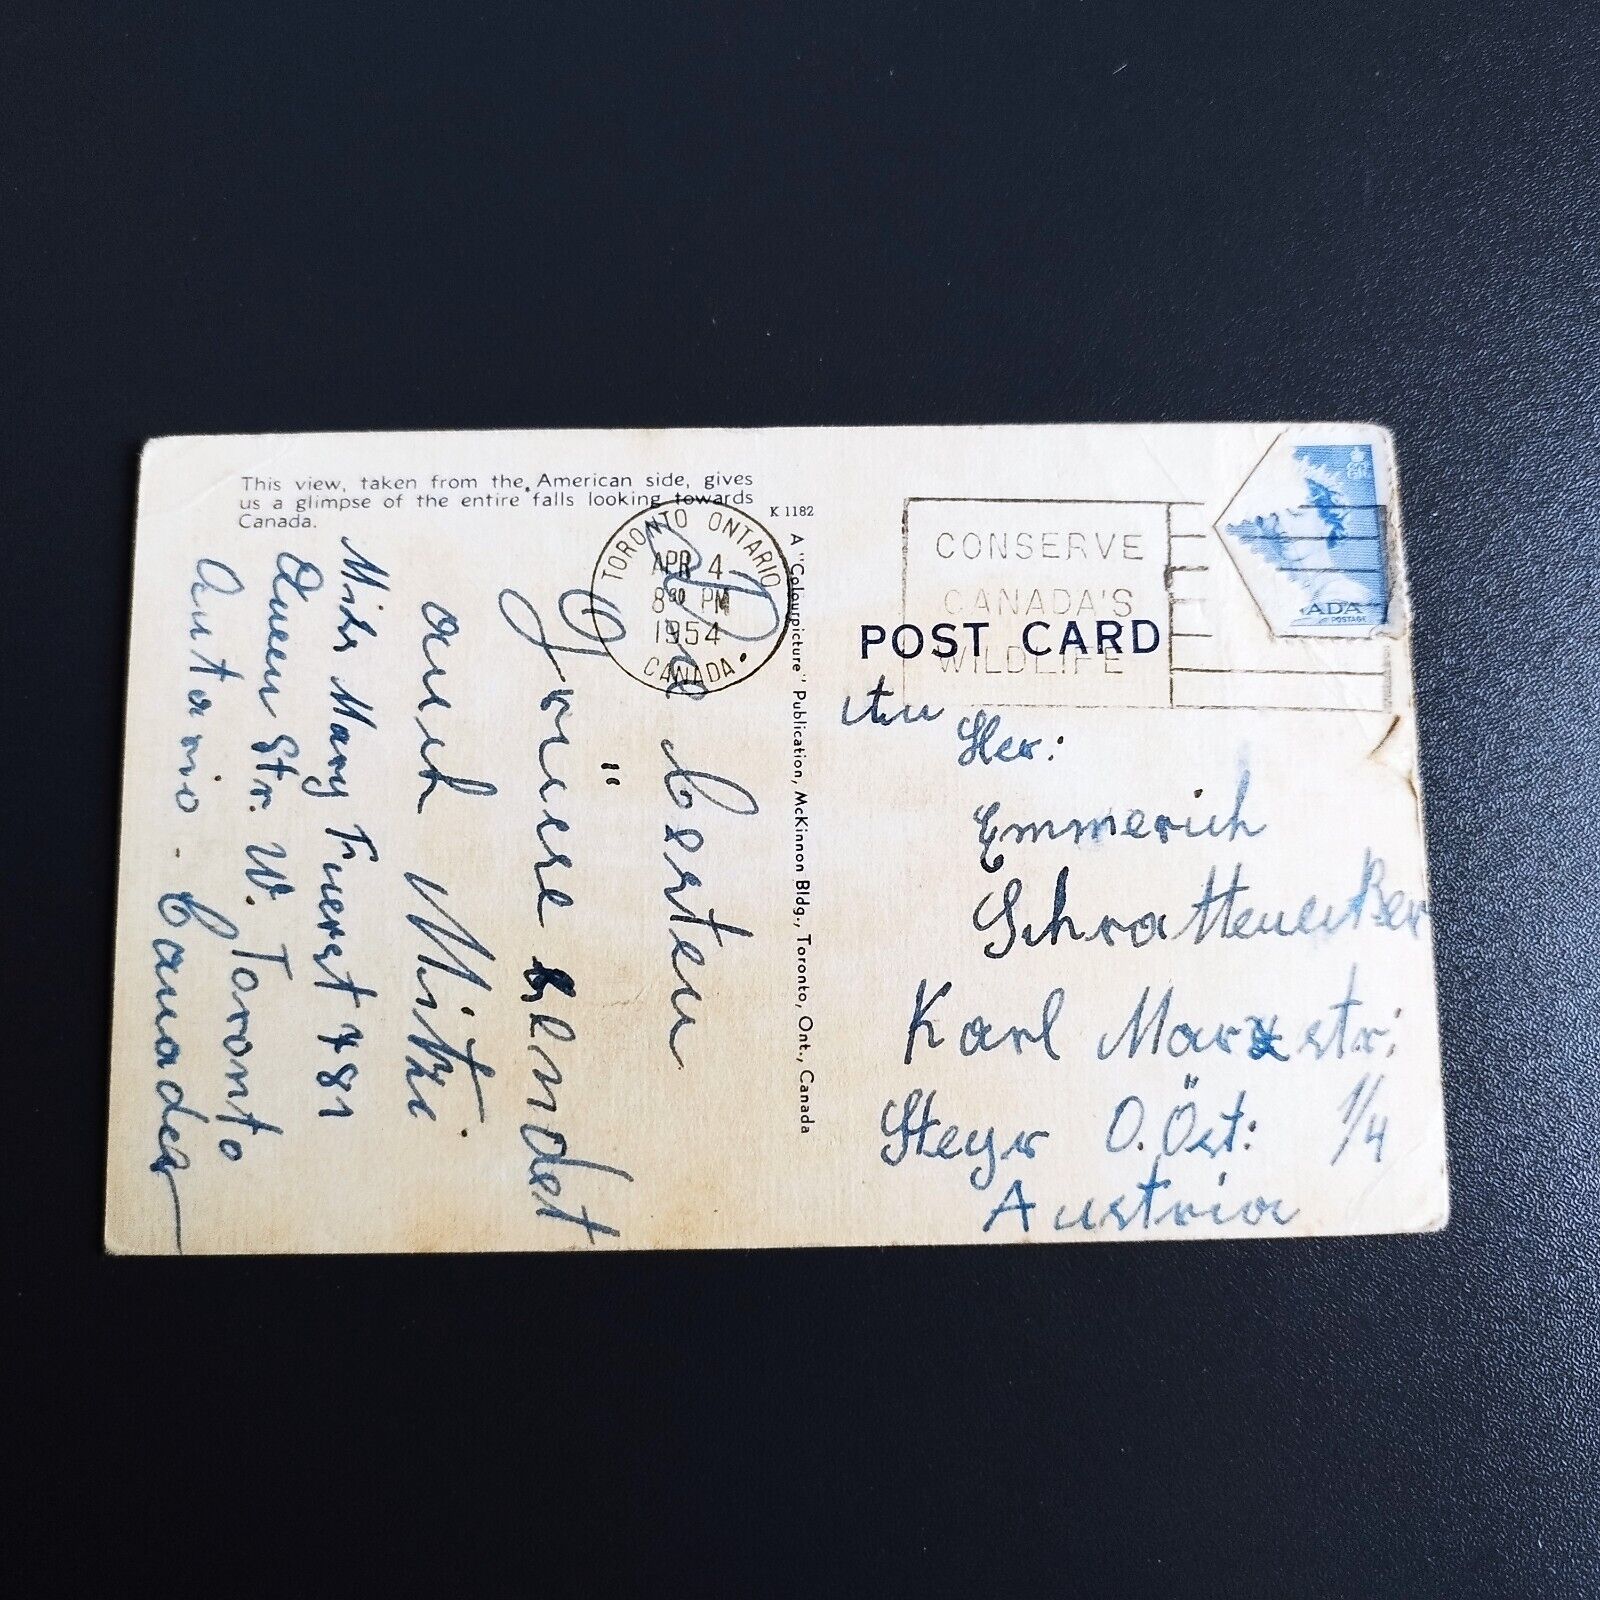 This view, taken from the American side, gives
us a glimpse of the entire falls looking towards
Canada.
K 1182
A "Colourpicture" Publication, McKinnon Bldg., Toronto, Ont., Canada
POST CARD
TORONTO ONTARIO
APR 4
8 30 PM
1954
CANADA
CONSERVE
CANADA'S
WILDLIFE
ADA
POSTAGE
Die besten
Grüsse sendet
auch Mitzi
Miss Mary Fuerst 781
Queen Str. W. Toronto
Ontario. Canada
An
Her:
Emmerich
Schrattenecker
Karl Marxstr:
Steyr O.Öst: 1/4
Austria